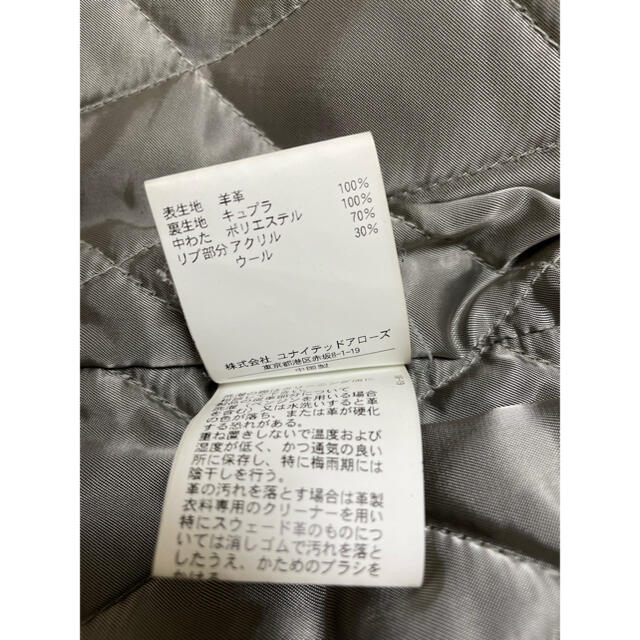 表生地 羊革 100%
裏生地 キュプラ 100%
中わた ポリエステル 70%
リブ部分 アクリル 30%
ウール
株式会社 ユナイテッドアローズ
東京都港区赤坂8-1-19
中国製
を用いる場合
又は水洗いすると革
の色が落ち、または革が硬化
する恐れがある。
重ね置きしないで温度および
湿度が低く、かつ通気の良い
所に保存し、特に梅雨期には
陰干しを行う。
革の汚れを落とす場合は革製
衣料専用のクリーナーを用い
特にスウェード革のものにつ
いては消しゴムで汚れを落と
したうえ、かためのブラシを
かける。